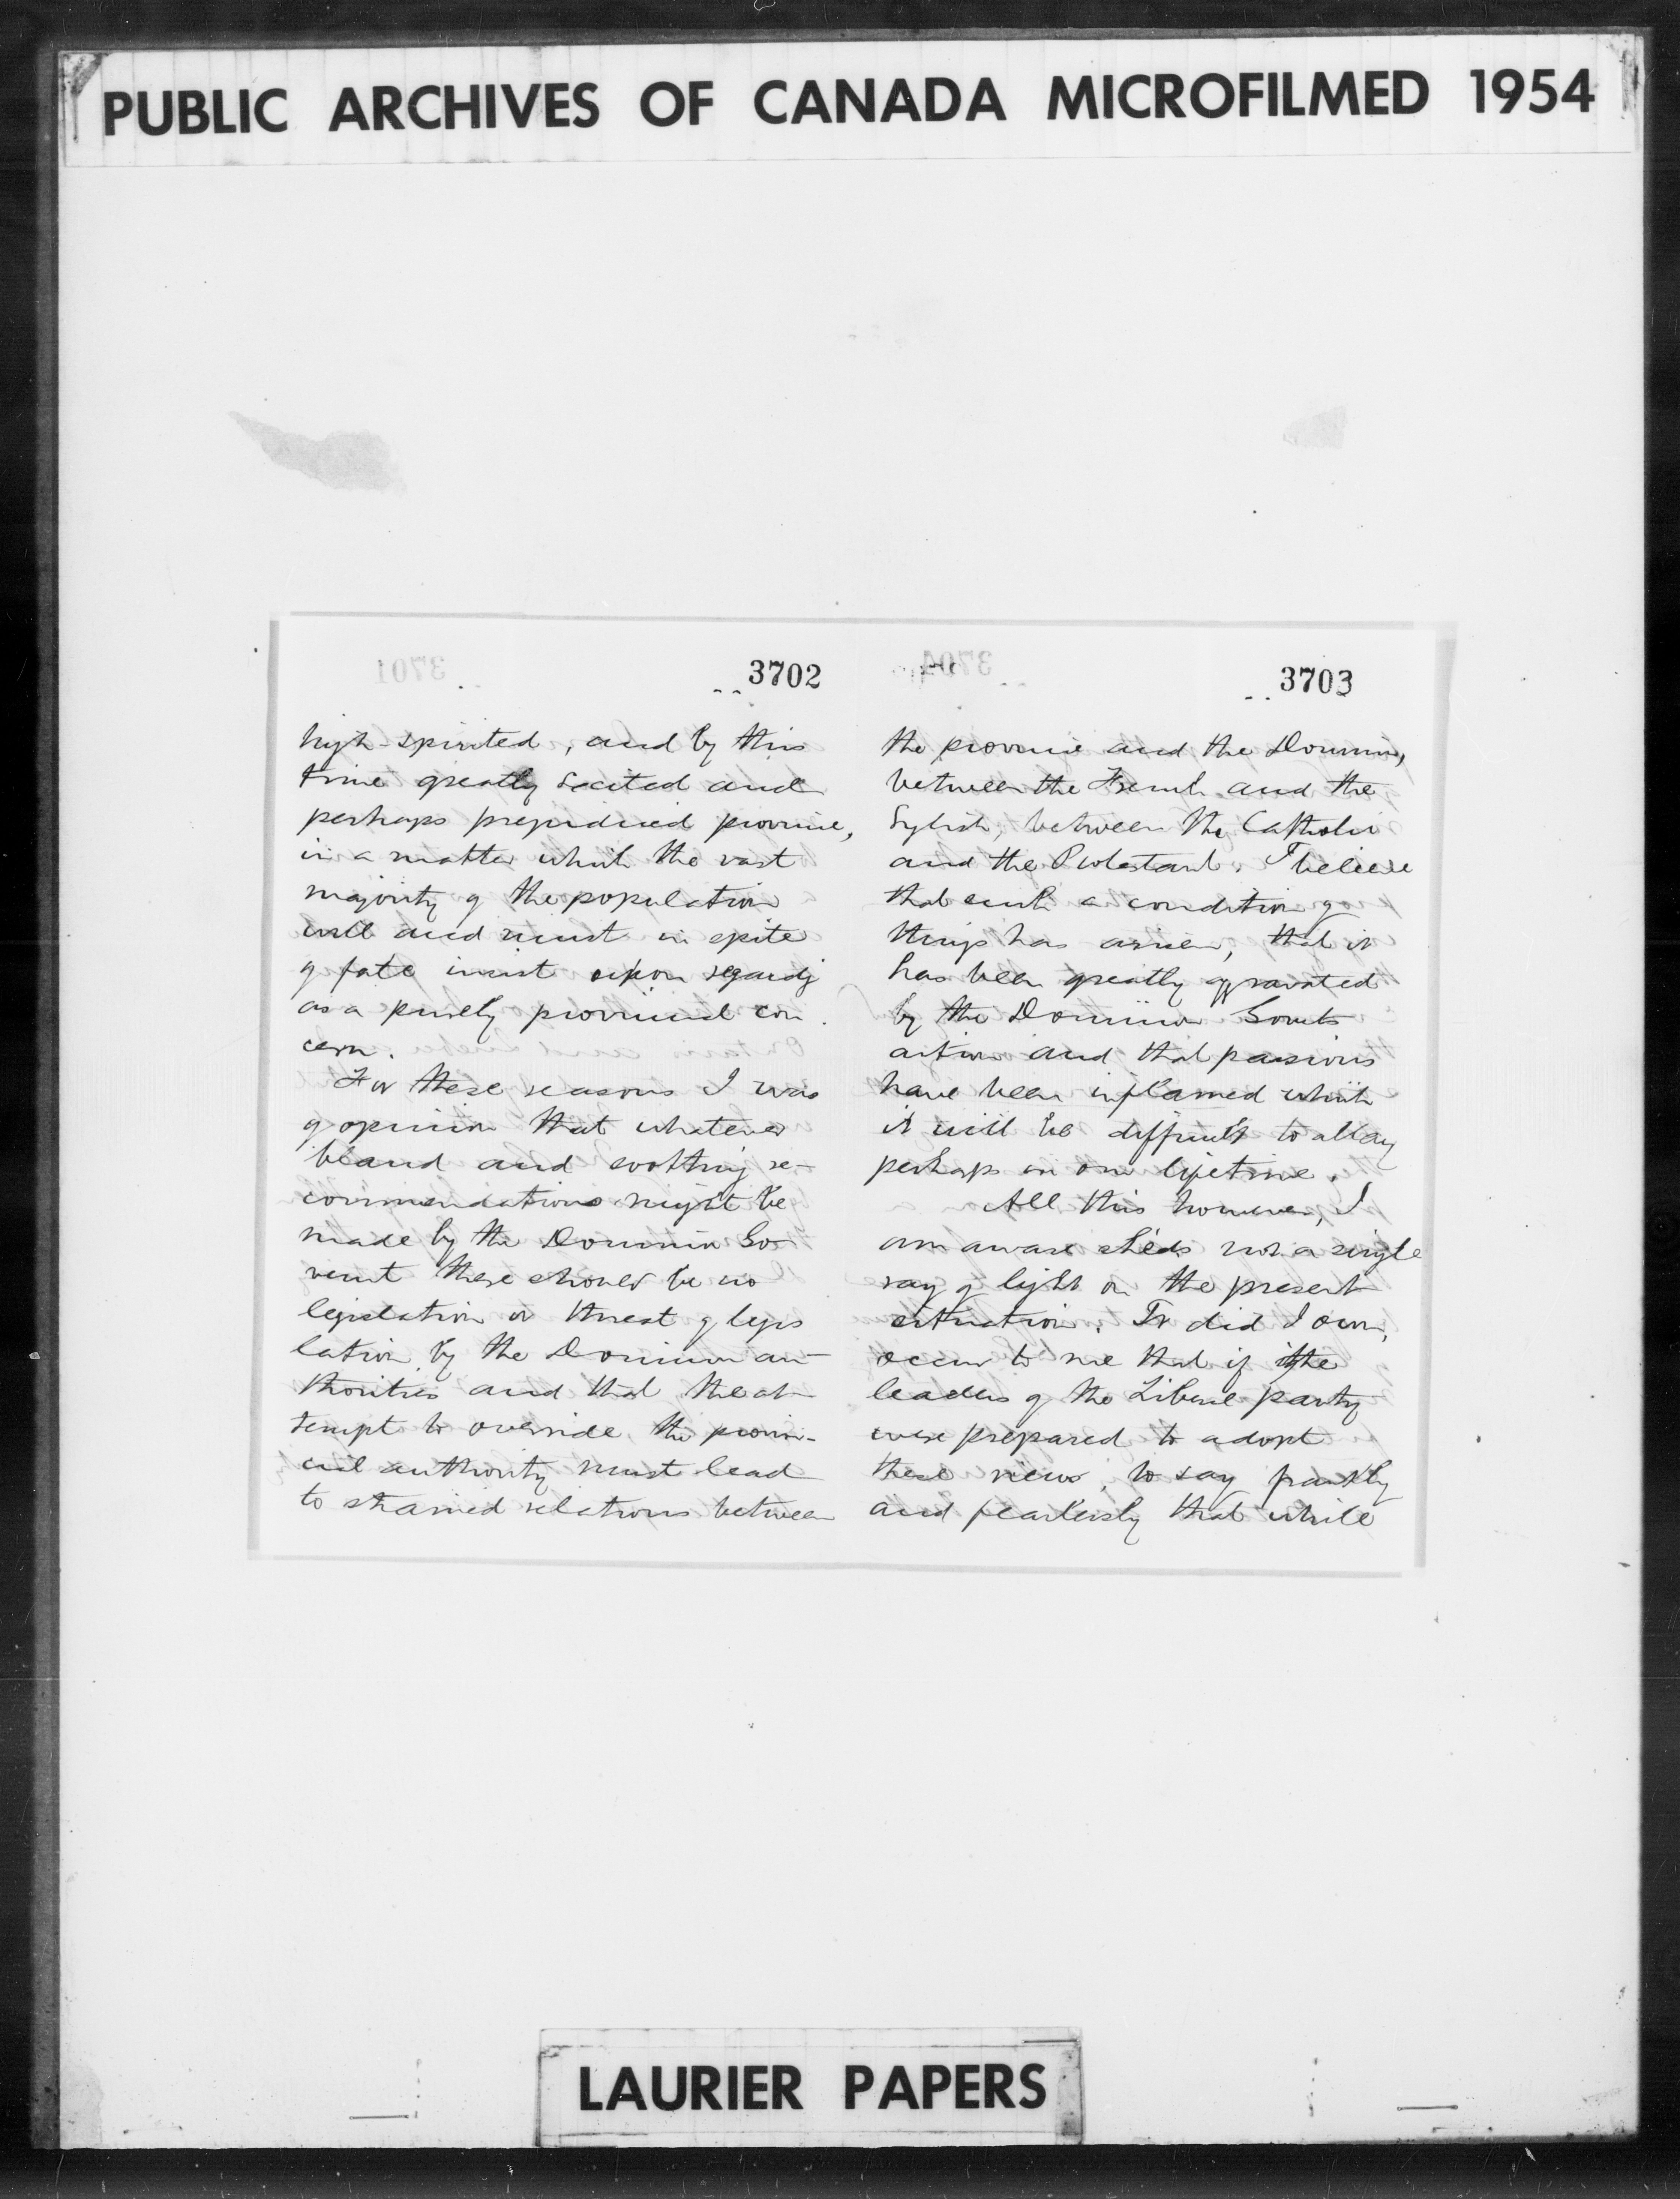 PUBLIC ARCHIVES OF CANADA MICROFILMED 1954
3702
high-spirited, and by this
time greatly excited and
perhaps prejudiced province,
in a matter which the vast
majority of the population
will and must in spite
of fate insist upon regardg
as a purely provincial con
cern.
For these reasons I was
of opinion that whatever
bland and soothing re-
commendations might be
made by the Dominion Go-
vernt there should be no
legislation or threat of legis
lation by the Dominion au-
thorities and that the at-
tempt to override the provin-
cial authority must lead
to strained relations between
3703
the province and the Dominion,
between the French and the
English, between the Catholic
and the Protestant. I believe
that such a condition of
things has arisen, that it
has been greatly aggravated
by the Dominion Govnts
action and that passions
have been inflamed which
it will be difficult to allay
perhaps in one lifetime.
All this however, I
am aware sheds not a single
ray of light on the present
situation. It did I own,
occur to me that if the
leaders of the Liberal party
were prepared to adopt
these views, to say frankly
and fearlessly that while
LAURIER PAPERS